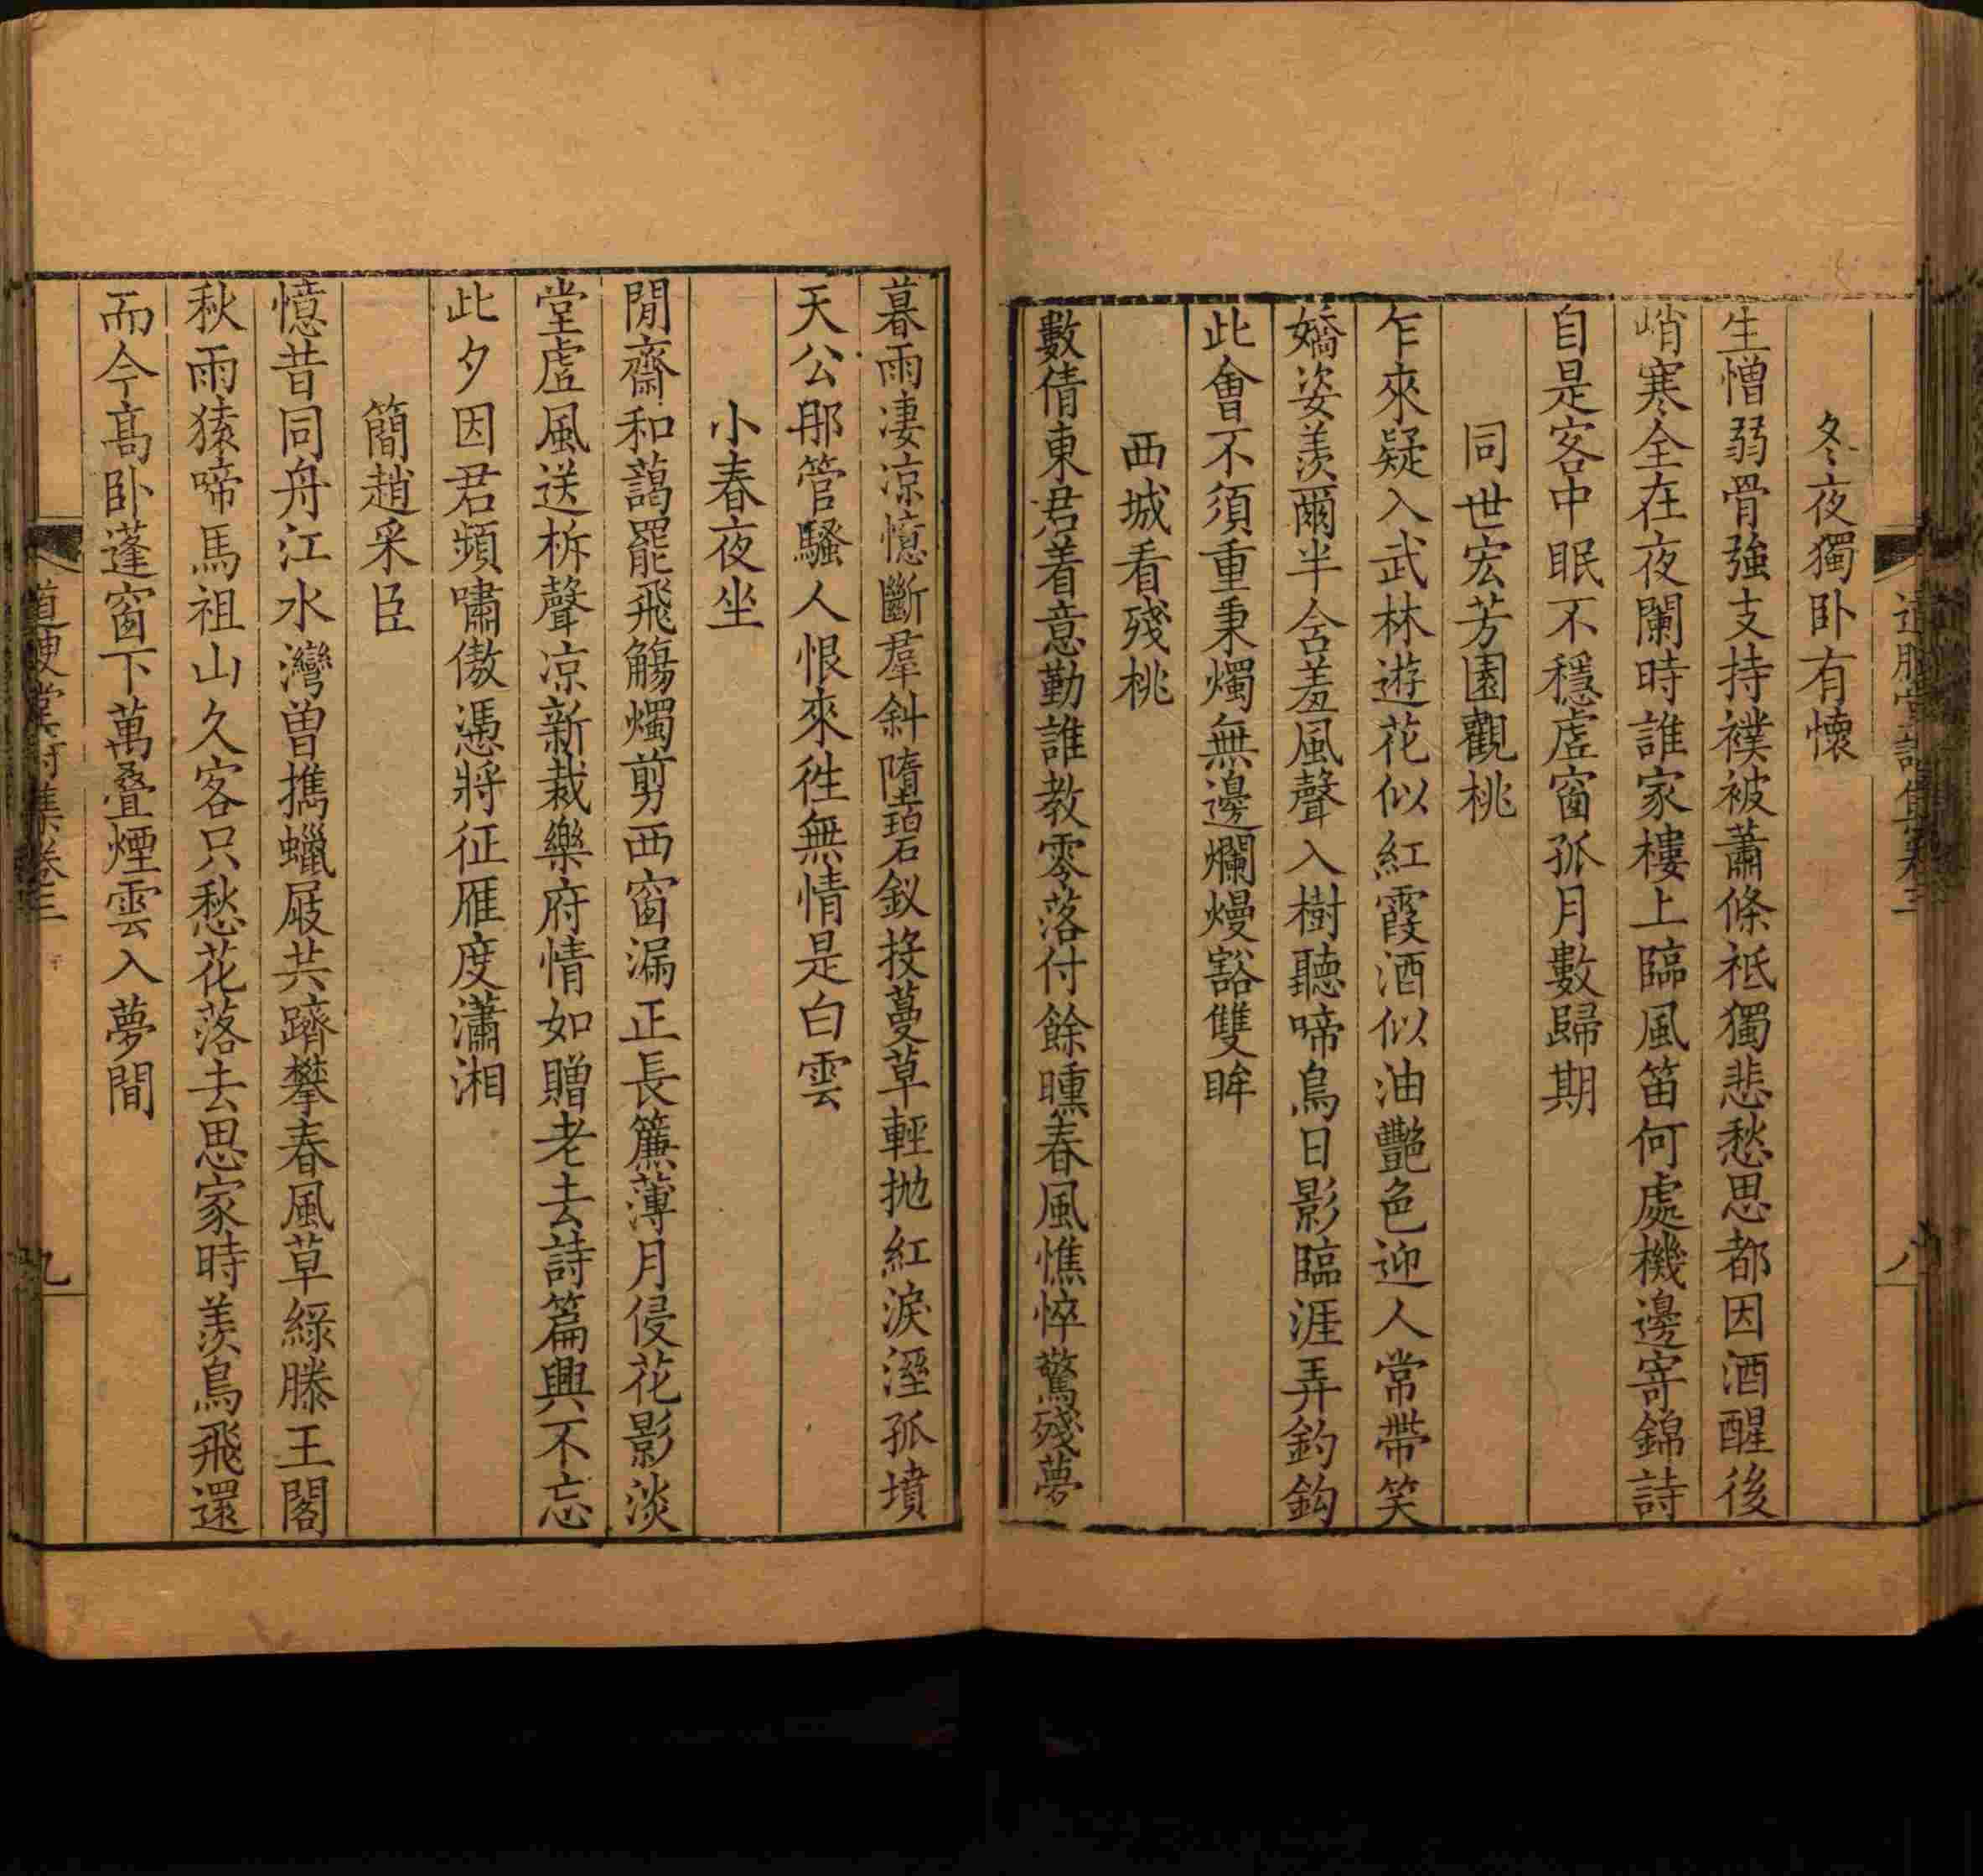 冬夜獨卧有懷
生憎弱骨強支持襆被蕭條祗獨悲愁思都因酒醒後
峭寒全在夜闌時誰家樓上臨風笛何處機邊寄錦詩
自是客中眠不穩虛窗孤月數歸期
同世宏芳園觀桃
乍來疑入武林遊花似紅霞酒似油艷色迎人常帶笑
嬌姿羨爾半含羞風聲入樹聽啼鳥日影臨涯弄釣鈎
此會不須重秉燭無邊爛熳豁雙眸
西城看殘桃
數倩東君着意勤誰教零落付餘曛春風憔悴驚殘夢
暮雨凄凉憶斷羣斜墮碧釵接蔓草輕拋紅淚溼孤墳
天公那管騷人恨來徃無情是白雲
小春夜坐
閒齋和藹罷飛觴燭剪西窗漏正長簾薄月侵花影淡
堂虛風送柝聲凉新裁樂府情如贈老去詩篇興不忘
此夕因君頻嘯傲憑將征雁度瀟湘
簡趙采臣
憶昔同舟江水灣曾擕蠟屐共躋攀春風草綠滕王閣
秋雨猿啼馬祖山久客只愁花落去思家時羨鳥飛還
而今高卧蓬窗下萬疊煙雲入夢間
卷三
九